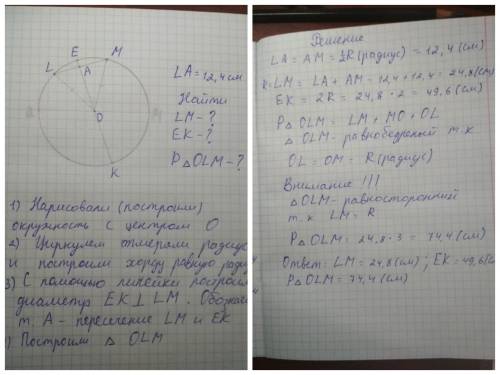 E
M
L
A
O
K
LA = 12,4 см
Найти
LM - ?
EK - ?
P△OLM - ?
1) Нарисовали (построили)
окружность с центром O
2) Циркулем отмеряли радиус
и построили хорду равную
3) С помощью линейки построи
диаметр EK ⊥ LM. Обозна
т. A - пересечение LM и EK
Построим △ OLM
Решение
LA = AM = R (радиус) = 12,4 (см)
R = LM = LA + AM = 12,4 + 12,4 = 24,8 (см)
EK = 2R = 24,8 · 2 = 49,6 (см)
P△OLM = LM + MO + OL
△ OLM - равнобедренный т.к
OL = OM = R (радиус)
Внимание !!!
△ OLM - равносторонний
т.к LM = R
P△OLM = 24,8 · 3 = 74,4 (см)
Ответ: LM = 24,8 (см); EK = 49,6 (см
P△OLM = 74,4 (см)